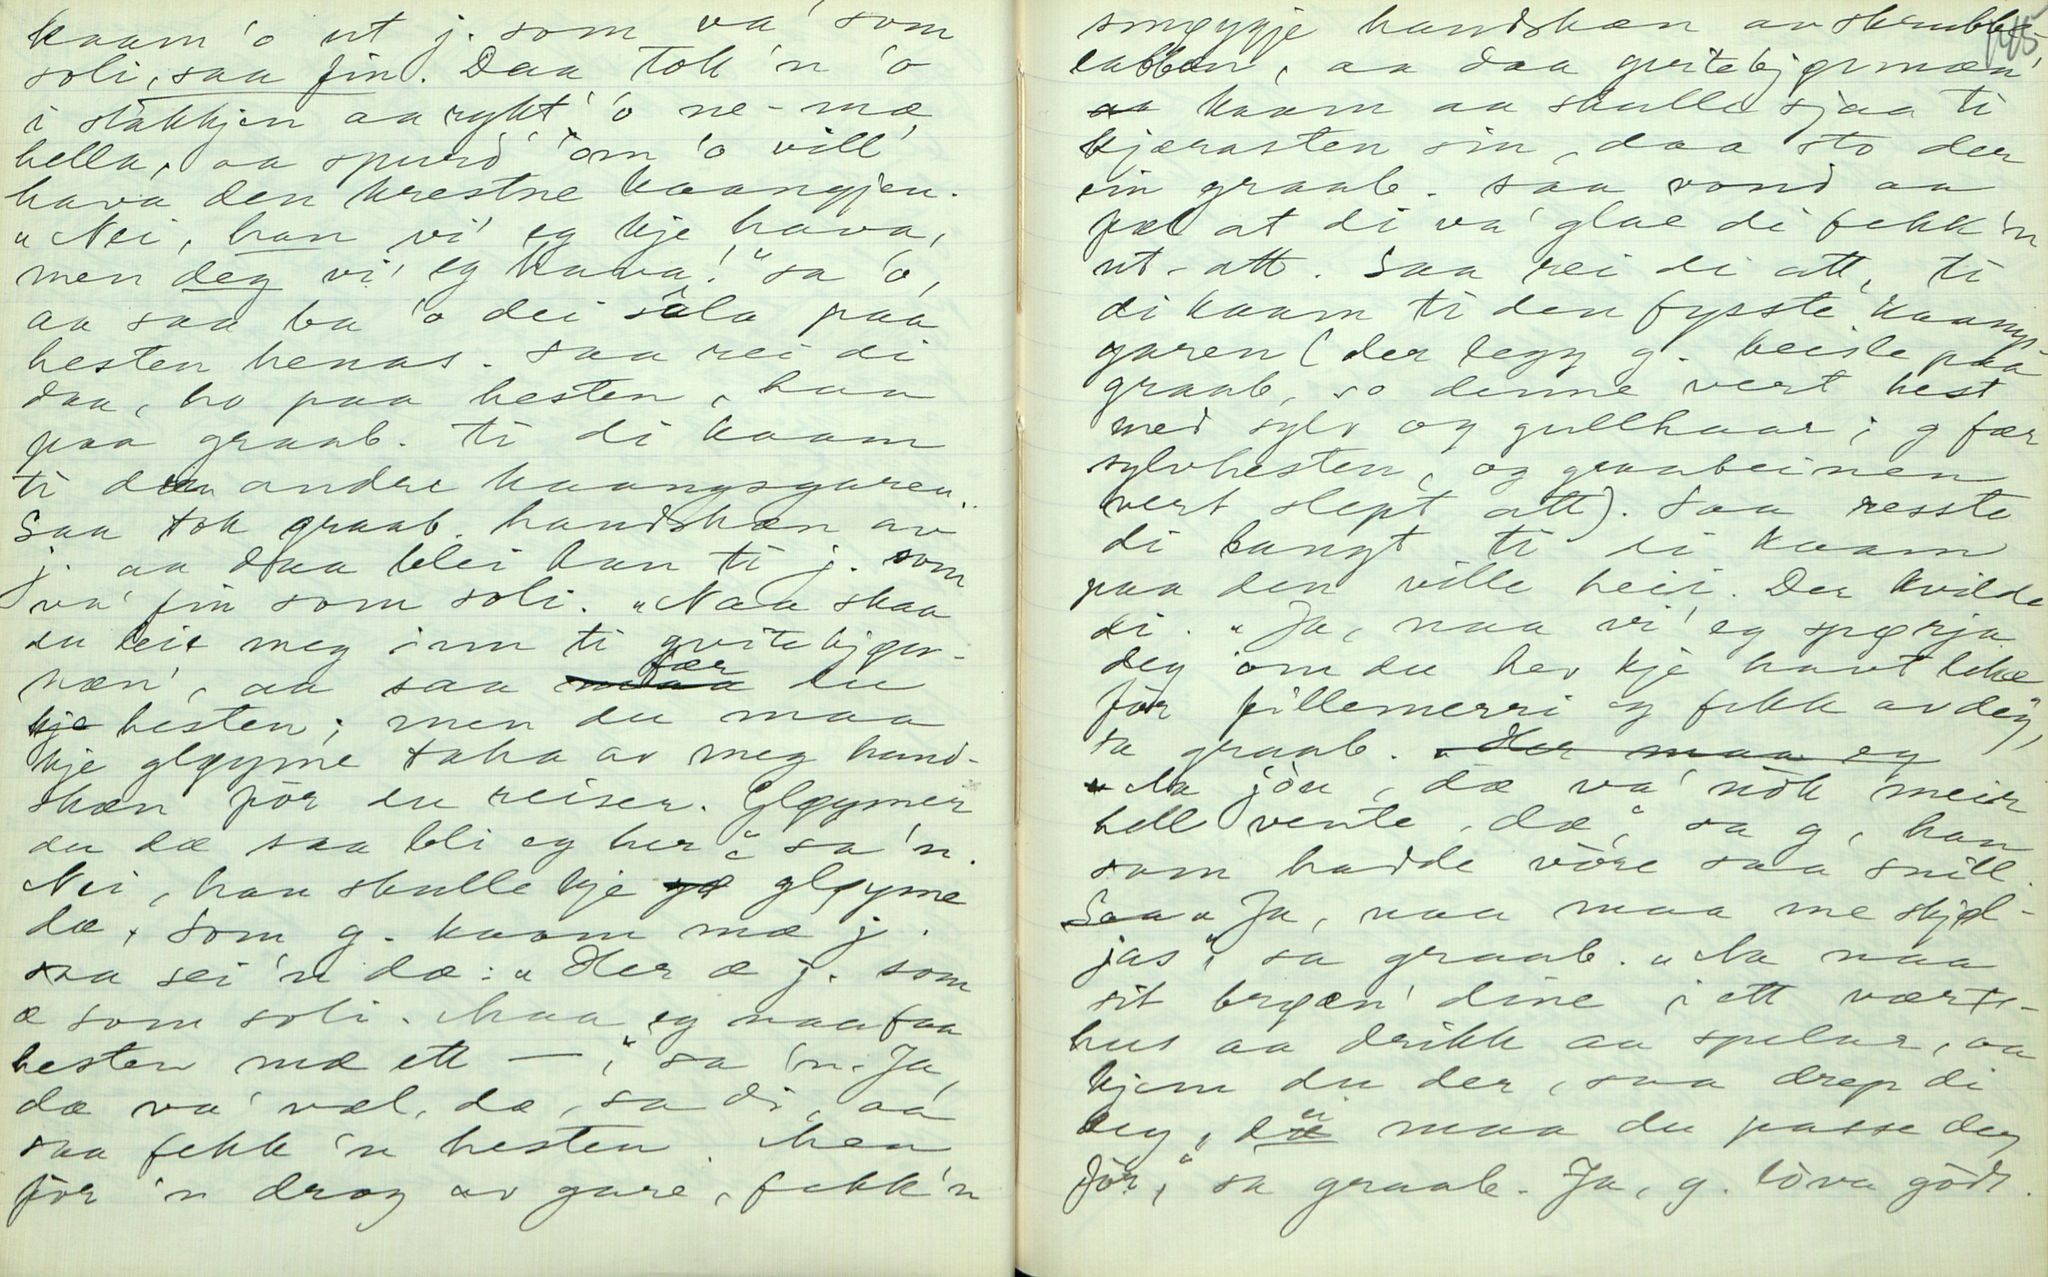 kaam 'o ut j. som va' som
soli, saa fin. Daa tok 'n 'o
i stakkjen aa rykt' 'o ne-mæ
hella, aa spurd' 'om 'o vill'
hava den krestne kaangjen.
„Nei, han vi' eg kje hava,
men deg vi' eg hava!" sa 'o,
aa saa ba 'o dei sala paa
hesten henas. Saa rei di
daa, ho paa hesten, han
paa graab. ti di kaam
ti den andre kaangsgaren.
Saa tok graab. handskæn av
j. aa daa blei han ti j. som
va' fin som soli. „Naa skaa
du leie meg inn ti gvitebjøn-
næn', aa saa fær du
hesten; men du maa
kje gløyme taka av meg hand-
skæn før du reiser. Gløymer
du dæ saa bli eg her," sa 'n.
Nei, han skulle kje gløyme
dæ. Som g. kaam mæ j.
saa sei 'n dæ: „Her æ j. som
æ som soli. Maa eg naa faa
hesten mæ ett —," sa 'n. Ja,
dæ va' væl, dæ, sa di, aa
saa fekk 'n hesten. Men
før 'n drog av gare, fekk 'n
smøygje handskæn av skrubbe-
labben, aa daa gvitebjønnæn'
kaam aa skulle sjaa ti
kjærasten sin, daa sto der
ein graab. saa vond aa
fæl at di va' glae di fekk 'n
ut-att. Saa rei di att, ti
di kaam ti den fysste kaangs-
garen (der legg g. beisle paa
graab, so denne vert hest
med sylv og gullhaar; g fær
sylvhesten, og graabeinen
vert slept att). Saa resste
di langt ti di kaam
paa den ville heii. Der kvilde
di. „Ja, naa vi' eg spørja
deg om du hev kje havt like
før fillemerri eg fekk av deg,
sa graab.
„Aa jou, dæ va' nok meir
hell vente, dæ," sa g, han
som hadde vøre saa snill.
„Ja, naa maa me skjøl-
jas," sa graab. „Aa naa
sit brøæn' dine i ett værts-
hus aa drikk aa spelar, aa
kjem du der, saa drep di
deg, dæ maa du passe deg
før," sa graab. Ja, g. lova godt.